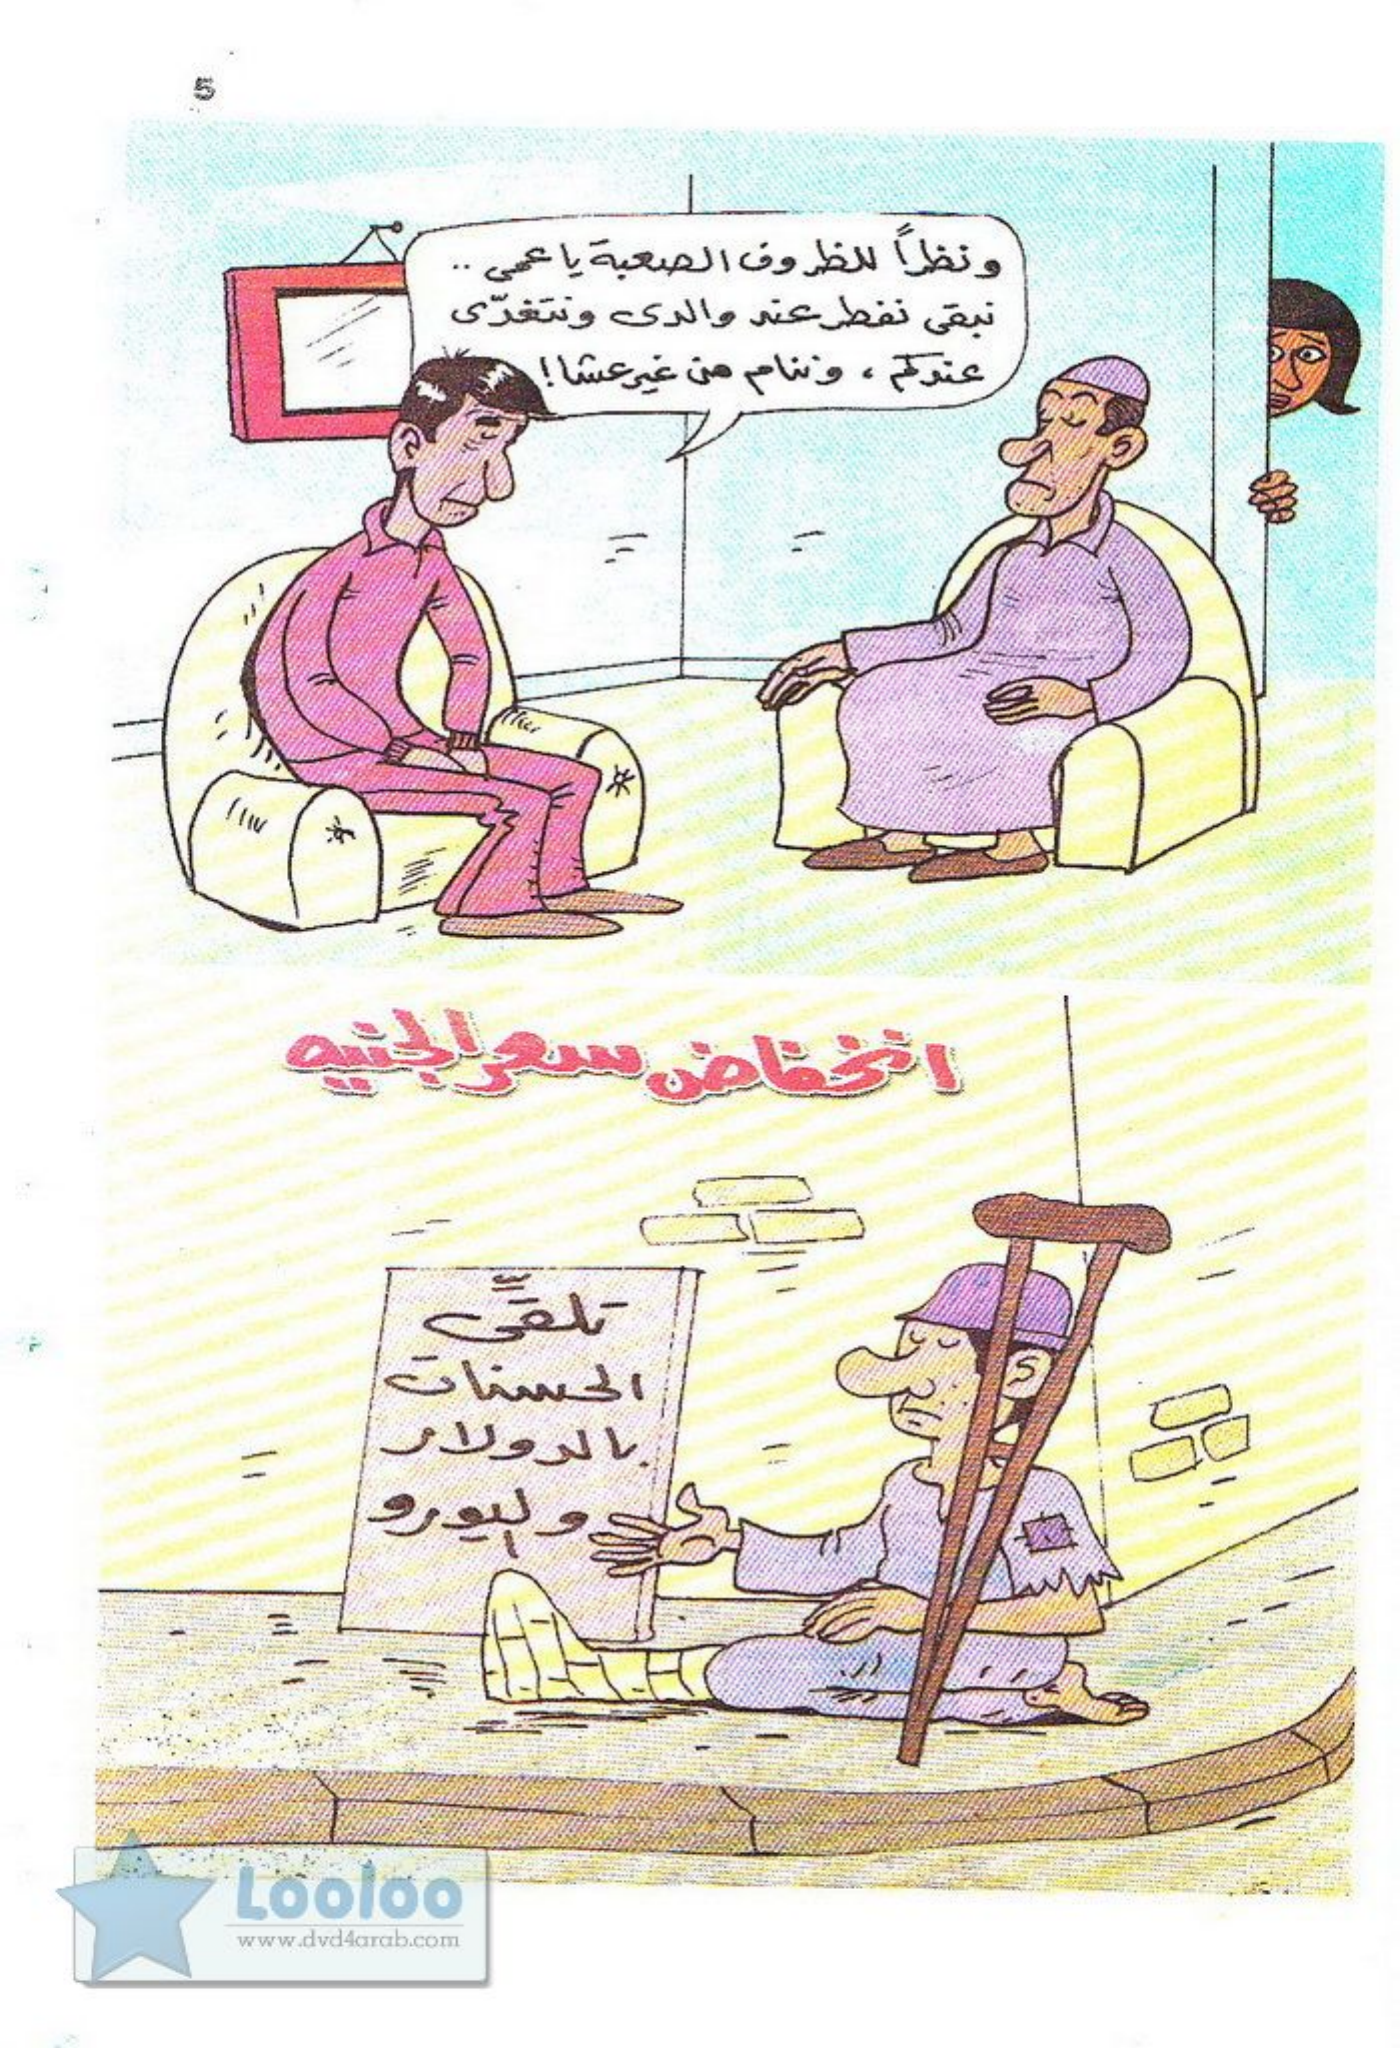 5
ونظراً للظروف الصعبة يا عمى ..
نبقى نفطر عند والدى ونتغدّى
عندكم ، وننام من غير عشا !
انخفاض سعر الجنيه
تلقىّ
الحسنات
بالدولار
واليورو
Looloo
www.dvd4arab.com